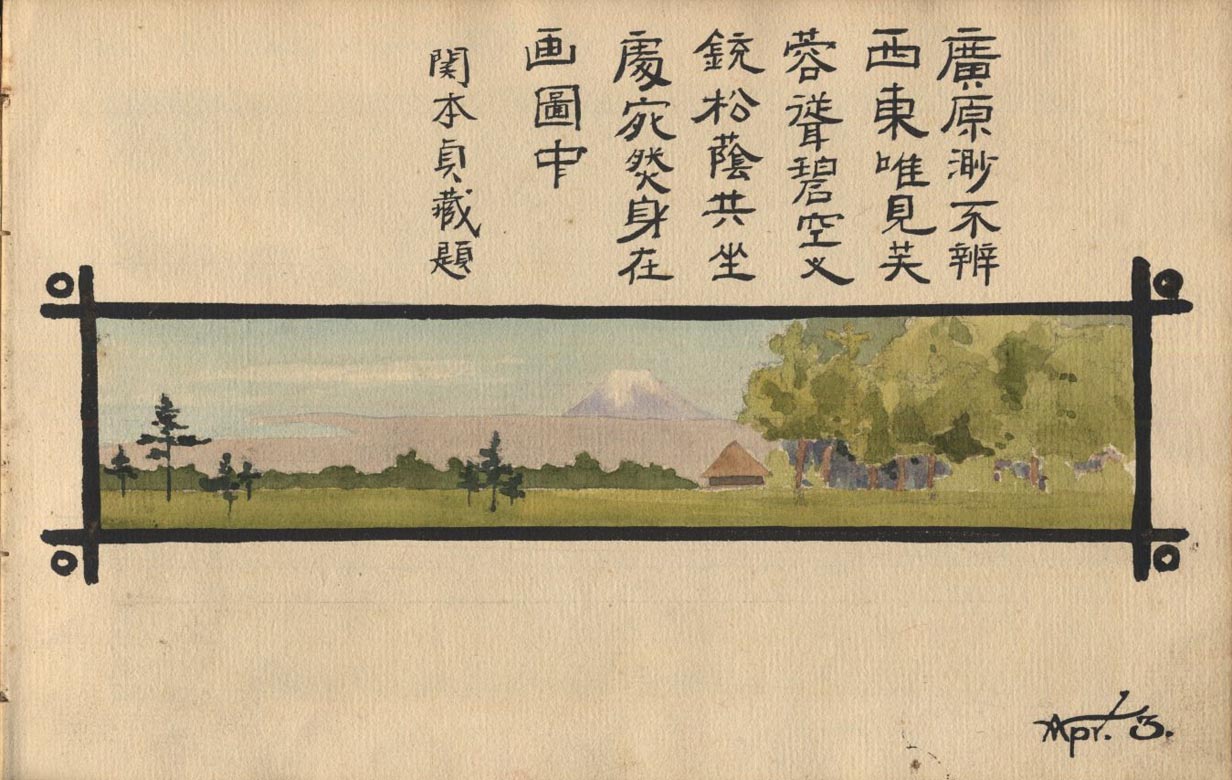 廣原渺不辨
西東唯見芙
蓉聳碧空叉
銃松蔭共坐
處宛然身在
画圖中
関本貞蔵題
Apr. 3.